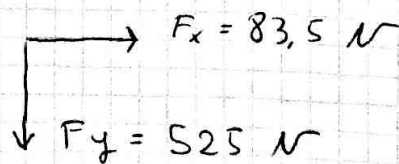 Fx = 83,5 N
Fy = 525 N